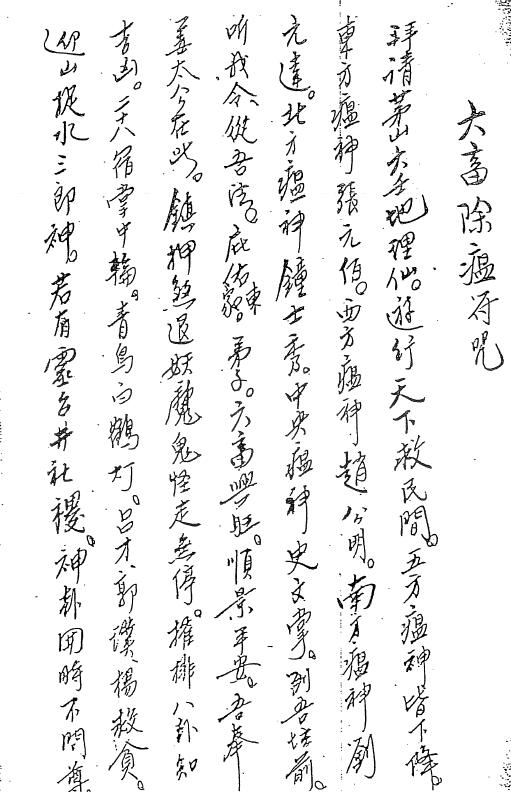 大畜除瘟符咒
拜请茅山六壬地理仙。游行天下救民間。五方瘟神皆下降。
東方瘟神張元伯。西方瘟神趙公明。南方瘟神劉
元達。北方瘟神鐘士秀。中央瘟神史文業。到吾坛前。
听我令、從吾法。庇佑東家。弟子。六畜興旺。順景平安。吾奉
姜太公在此。鎮押煞退妖魔鬼怪走無停。推排八卦知
吉凶。二十八宿掌中輪。青鳥白鶴灯。吕才、郭璞、楊救貧。
迎山捉水三郎神。若有靈台井社稷。神卦開時不問尊